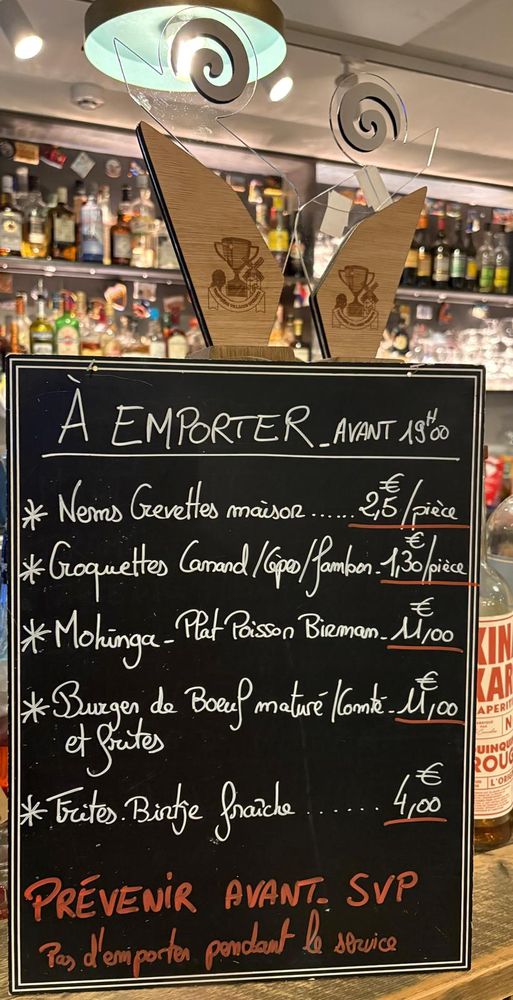 À EMPORTER_AVANT 19H00
* Nems Crevettes maison...... 2,5€/pièce
* Croquettes Canard/Cèpes/Jambon_1,30€/pièce
* Mohinga_Plat Poisson Birman_11,00€
* Burger de Boeuf maturé/Comté_11,00€
et frites
* Frites. Bintje fraîche ...... 4,00€
PRÉVENIR AVANT_ SVP
Pas d'emporter pendant le service
KINA
KAR
APERITI
ROUG
L'ORI